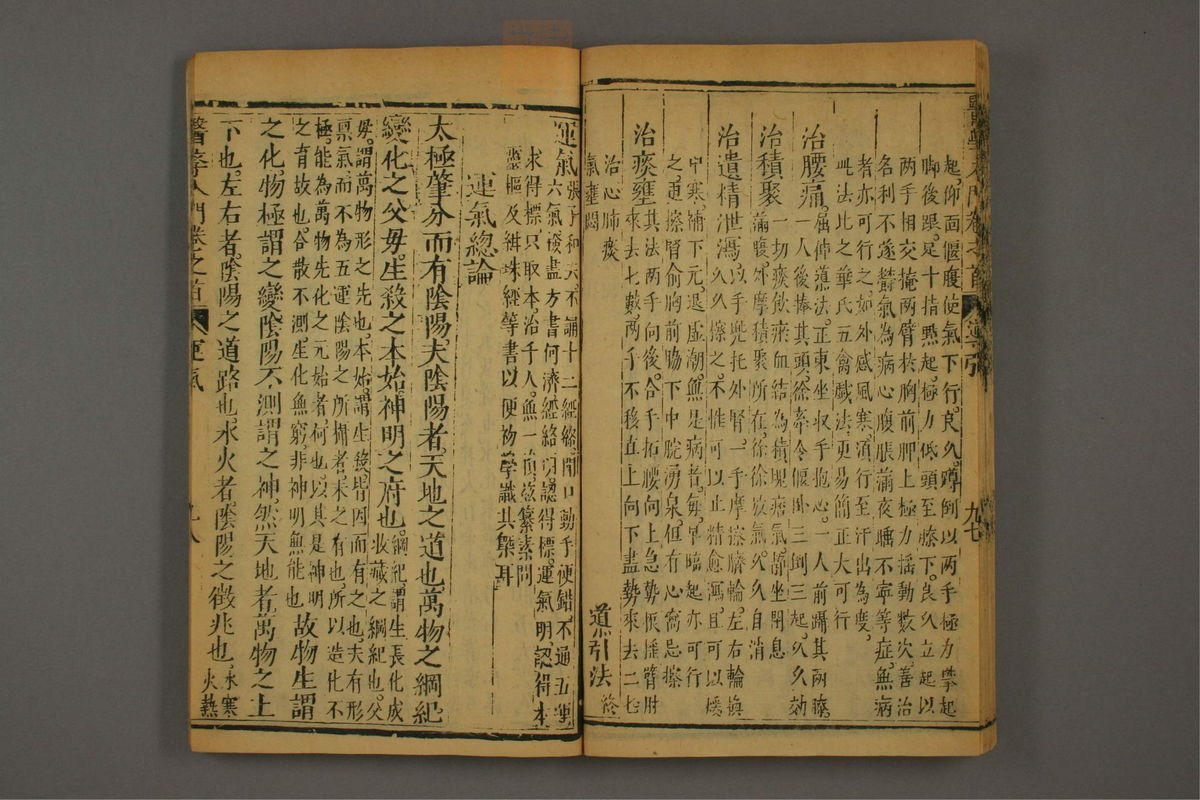 醫學入門卷之首 導引 九七
起仰面偃腹使氣下行良久蹲倒以兩手極力攀起
脚後跟足十指㸃起極力低頭至膝下良久立起以
兩手相交掩兩臂於胸前胛上極力摇動數次善治
名利不遂鬱氣為病心腹脹滿夜䁥不寧等症無病
者亦可行之如外感風寒須行至汗出為度
此法比之華氏五禽戲法更易簡正大可行
治腰痛屈伸導法正東坐收手抱心一人前躡其兩膝
一人後捧其頭徐牽令偃卧三到三起久久効
治積聚一切痰飲瘀血結為積塊痞氣靜坐閉息
滿腹外摩積聚所在徐徐放氣久久自消
治遺精泄瀉以手兜托外腎一手摩擦臍輪左右輪換
久久擦之不惟可以止精愈瀉且可以煖
中寒補下元退虛潮無是病者每早臨起亦可行
之更擦腎俞胸前脇下中脘湧泉但有心窩忌擦
治痰壅其法兩手向後合手拓腰向上急勢振揺臂肘
來去七數兩手不移直上向下盡勢來去二七
治心肺痰
氣壅悶
導引法終
運氣張子和云不誦十二經絡開口動手便錯不通五運
六氣檢盡方書何濟經絡明認得標運氣明認得本
求得標只取本治千人無一損敬纂素問
靈樞及緝珠經等書以便初學識其槩耳
運氣總論
太極肇分而有陰陽夫陰陽者天地之道也萬物之綱紀
變化之父母生殺之本始神明之府也綱紀謂生長化成收藏之綱紀也父
母謂萬物形之先也本始謂生殺皆因而有之也夫有形
禀氣而不為五運陰陽之所攝者未之有也所以造化不
極能為萬物先化之元始者何也以其是神明
之育故也合散不測生化無窮非神明無能也故物生謂
之化物極謂之變陰陽不測謂之神然天地者萬物之上
下也左右者陰陽之道路也水火者陰陽之徵兆也水寒火熱
醫學入門卷之首 運氣 九八